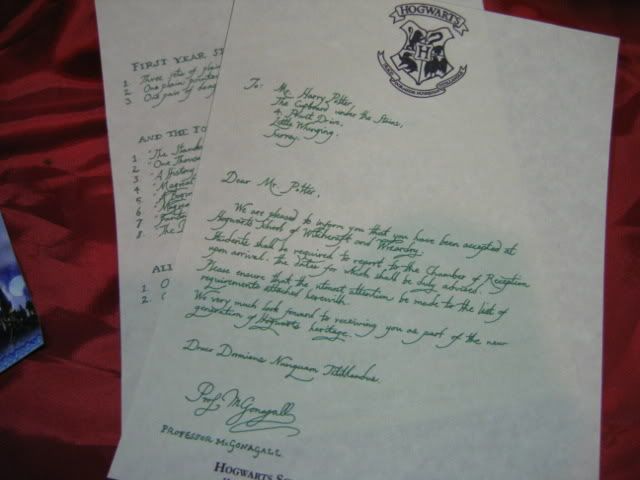 HOGWARTS
H
To: Mr. Harry Potter,
The Cupboard under the Stairs,
4, Privet Drive,
Little Whinging,
Surrey.
Dear Mr. Potter,
We are pleased to inform you that you have been accepted at
Hogwarts School of Witchcraft and Wizardry.
Students shall be required to report to the Chamber of Reception
upon arrival, the dates for which shall be duly advised.
Please ensure that the utmost attention be made to the list of
requirements attached herewith.
We very much look forward to receiving you as part of the new
generation of Hogwarts heritage.
Draco Dormiens Nunquam Titillandus.
Prof. McGonagall
PROFESSOR McGONAGALL
HOGWARTS
FIRST YEAR
1 Three sets of plain
2 One plain pointed
3 One pair of
AND THE
1 "The
2 "One
3 "A History
4 "Magical
5 "A
6 "
7 "
8 "The
ALL
1
2